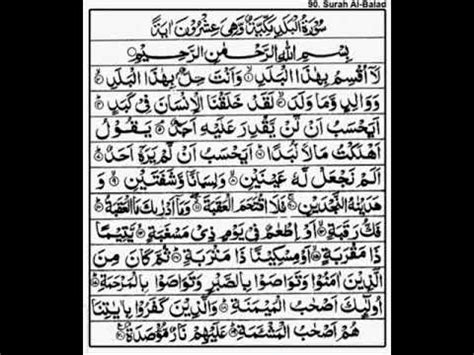 90. Surah Al-Balad
سُوْرَةُ الْبَلَدِ مَكِّيَّةٌ وَهِيَ عِشْرُوْنَ اٰيَةً
بِسْمِ اللّٰهِ الرَّحْمٰنِ الرَّحِيْمِ
لَآ اُقْسِمُ بِهٰذَا الْبَلَدِ ۙ۱ وَاَنْتَ حِلٌّۢ بِهٰذَا الْبَلَدِ ۙ۲
وَوَالِدٍ وَّمَا وَلَدَ ۙ۳ لَقَدْ خَلَقْنَا الْاِنْسَانَ فِيْ كَبَدٍ ۴
اَيَحْسَبُ اَنْ لَّنْ يَّقْدِرَ عَلَيْهِ اَحَدٌ ۘ۵ يَقُوْلُ
اَهْلَكْتُ مَالًا لُّبَدًا ۶ اَيَحْسَبُ اَنْ لَّمْ يَرَهٗٓ اَحَدٌ ۷
اَلَمْ نَجْعَلْ لَّهٗ عَيْنَيْنِ ۙ۸ وَلِسَانًا وَّشَفَتَيْنِ ۙ۹
وَهَدَيْنٰهُ النَّجْدَيْنِ ۱۰ فَلَا اقْتَحَمَ الْعَقَبَةَ ۱۱ وَمَآ اَدْرٰىكَ مَا الْعَقَبَةُ ۱۲
فَكُّ رَقَبَةٍ ۙ۱۳ اَوْ اِطْعَامٌ فِيْ يَوْمٍ ذِيْ مَسْغَبَةٍ ۙ۱۴ يَّتِيْمًا
ذَا مَقْرَبَةٍ ۙ۱۵ اَوْ مِسْكِيْنًا ذَا مَتْرَبَةٍ ۱۶ ثُمَّ كَانَ مِنَ
الَّذِيْنَ اٰمَنُوْا وَتَوَاصَوْا بِالصَّبْرِ وَتَوَاصَوْا بِالْمَرْحَمَةِ ۱۷
اُولٰٓئِكَ اَصْحٰبُ الْمَيْمَنَةِ ۱۸ وَالَّذِيْنَ كَفَرُوْا بِاٰيٰتِنَا
هُمْ اَصْحٰبُ الْمَشْـَٔمَةِ ۱۹ عَلَيْهِمْ نَارٌ مُّؤْصَدَةٌ ۲۰